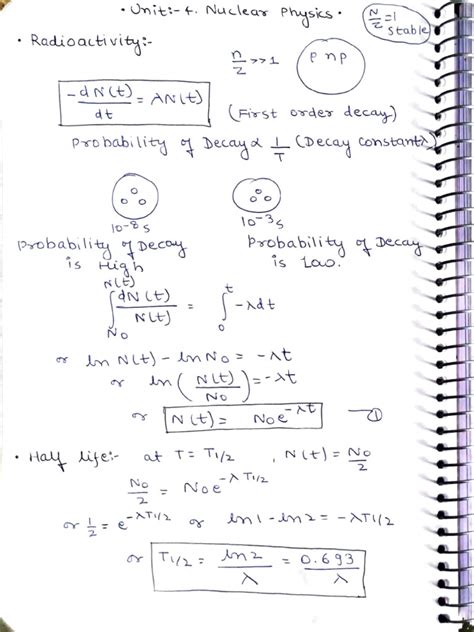 · Unit:- 4. Nuclear Physics ·
N/Z = 1 Stable
· Radioactivity:-
n/z >> 1
P n p
-dN(t)/dt = λN(t) (First order decay)
Probability of Decay ∝ 1/T (Decay constant λ)
10⁻⁸s
10⁻³s
Probability of Decay is High
Probability of Decay is Low.
∫_{N₀}^{N(t)} dN(t)/N(t) = ∫_0^t -λdt
or ln N(t) - ln N₀ = -λt
or ln(N(t)/N₀) = -λt
or N(t) = N₀e^{-λt} — ①
· Half life:- at T = T1/2 , N(t) = N₀/2
N₀/2 = N₀e^{-λT1/2}
or 1/2 = e^{-λT1/2} or ln1 - ln2 = -λT1/2
or T1/2 = ln2/λ = 0.693/λ